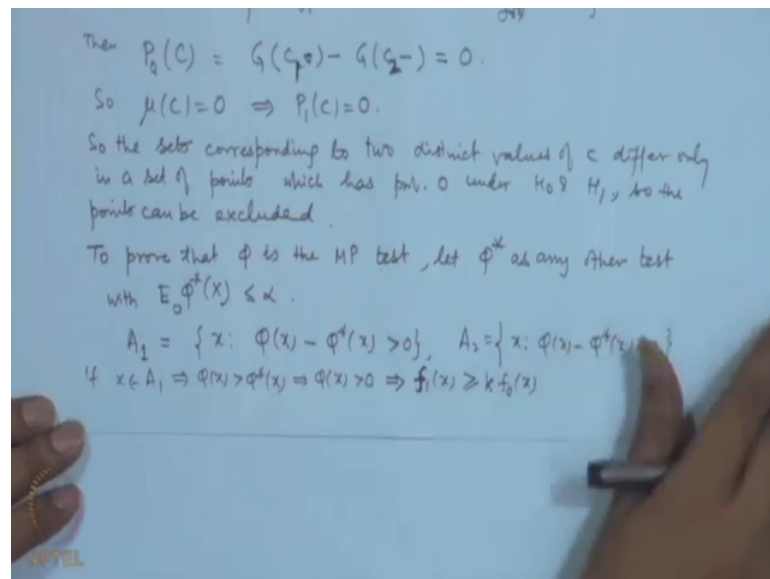 Then P₀(C) = G(c₁) - G(c₂-) = 0.
So μ(C)=0 ⇒ P₁(C)=0.
So the sets corresponding to two distinct values of c differ only
in a set of points which has prob. 0 under H₀ & H₁, so the
points can be excluded.
To prove that φ is the MP test, let φ* as any other test
with E₀φ*(X) ≤ α.
A₁ = {x: φ(x) - φ*(x) >0}, A₂={x: φ(x) - φ*(x) }
If x∈A₁ ⇒ φ(x)>φ*(x) ⇒ φ(x)>0 ⇒ f₁(x) ≥ k f₀(x)
NPTEL